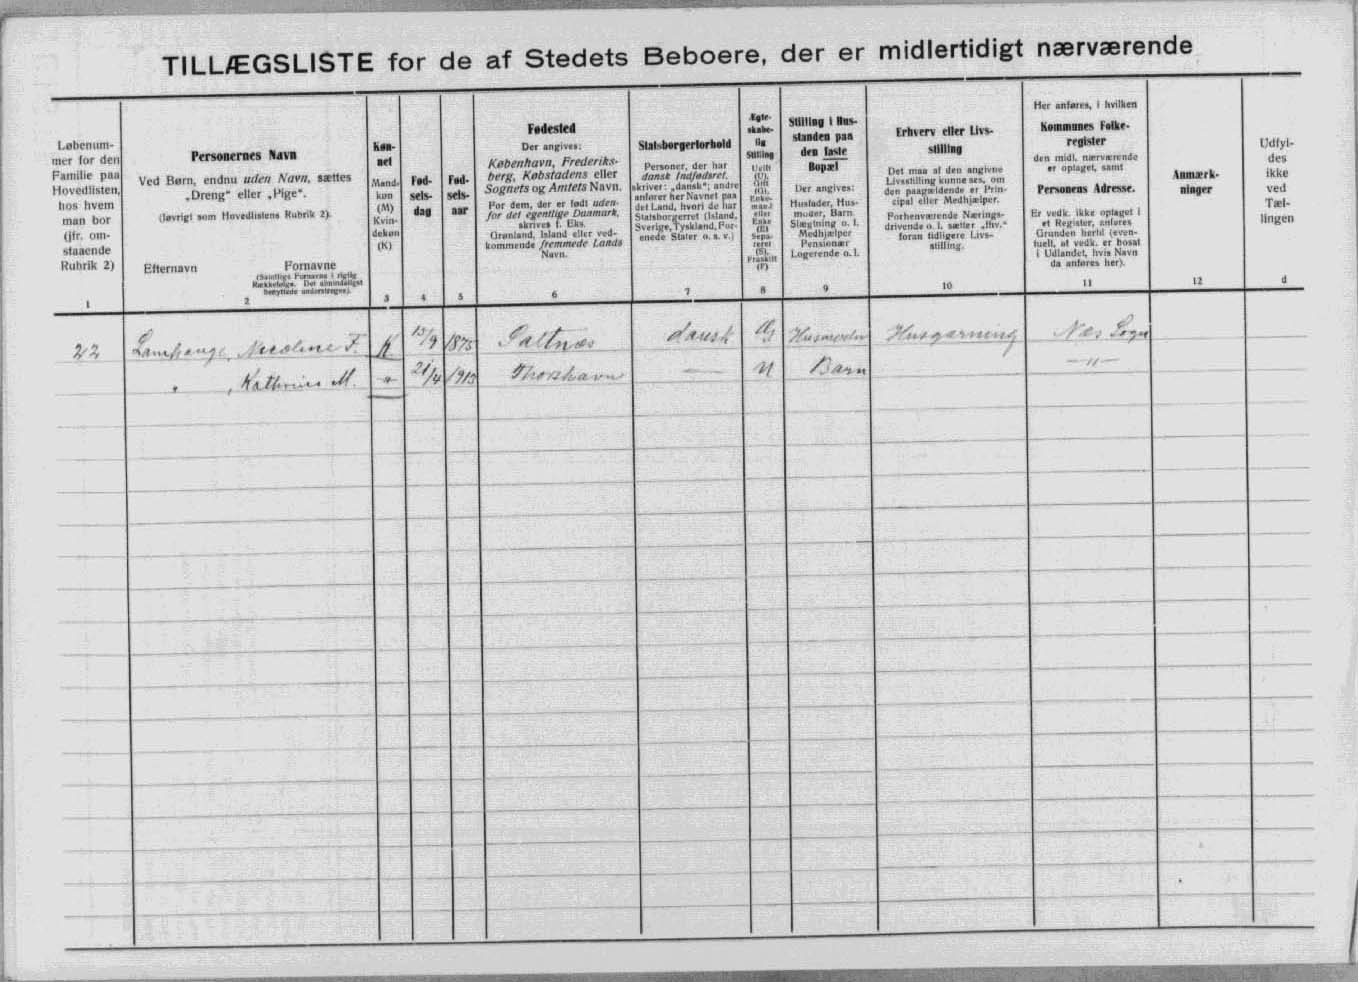 TILLÆGSLISTE for de af Stedets Beboere, der er midlertidigt nærværende
Løbenum-
mer for den
Familie paa
Hovedlisten,
hos hvem
man bor
(jfr. om-
staaende
Rubrik 2)
1
Personernes Navn
Ved Børn, endnu uden Navn, sættes
„Dreng“ eller „Pige“.
(Iøvrigt som Hovedlistens Rubrik 2).
Efternavn
Fornavne
(Samtlige Fornavne i rigtig
Rækkefølge. Det almindeligst
benyttede understreges).
2
Køn-
net
Mand-
køn
(M)
Kvin-
dekøn
(K)
3
Fød-
sels-
dag
4
Fød-
sels-
aar
5
Fødested
Der angives:
København, Frederiks-
berg, Købstadens eller
Sognets og Amtets Navn.
For dem, der er født uden-
for det egentlige Danmark,
skrives f. Eks.
Grønland, Island eller ved-
kommende fremmede Lands
Navn.
6
Statsborgerforhold
Personer, der har
dansk Indfødsret,
skriver: „dansk“; andre
anfører her Navnet paa
det Land, hvori de har
Statsborgerret (Island,
Sverige, Tyskland, For-
enede Stater o. s. v.)
7
Ægte-
skabe-
lig
Stilling
Ugift
(U),
Gift
(G),
Enke-
mand
eller
Enke
(E)
Sepa-
reret
(S),
Fraskilt
(F)
8
Stilling i Hus-
standen paa
den faste
Bopæl
Der angives:
Husfader, Hus-
moder, Barn
Slægtning o. l.
Medhjælper
Pensionær
Logerende o. l.
9
Erhverv eller Livs-
stilling
Det maa af den angivne
Livsstilling kunne ses, om
den paagældende er Prin-
cipal eller Medhjælper.
Forhenværende Nærings-
drivende o. l. sætter „fhv.“
foran tidligere Livs-
stilling.
10
Her anføres, i hvilken
Kommunes Folke-
register
den midl. nærværende
er optaget, samt
Personens Adresse.
Er vedk. ikke optaget i
et Register, anføres
Grunden hertil (even-
tuelt, at vedk. er bosat
i Udlandet, hvis Navn
da anføres her).
11
Anmærk-
ninger
12
Udfyl-
des
ikke
ved
Tæl-
lingen
d
22 Lamhauge, Nicoline F. K 15/9 1875 Saltnæs dansk G Husmoder Husgerning Næs Sogn
" , Kathrine M. -"- 21/4 1915 Thorshavn — U Barn —"—